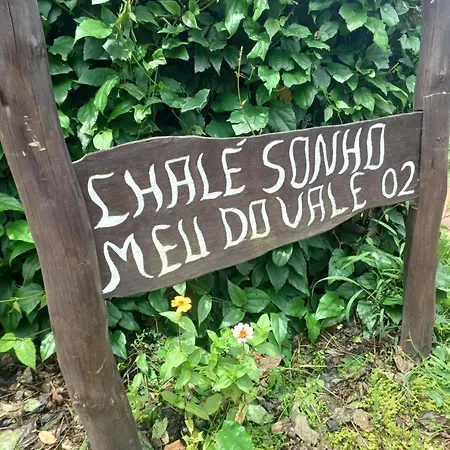 CHALÉ SONHO
MEU DO VALE 02